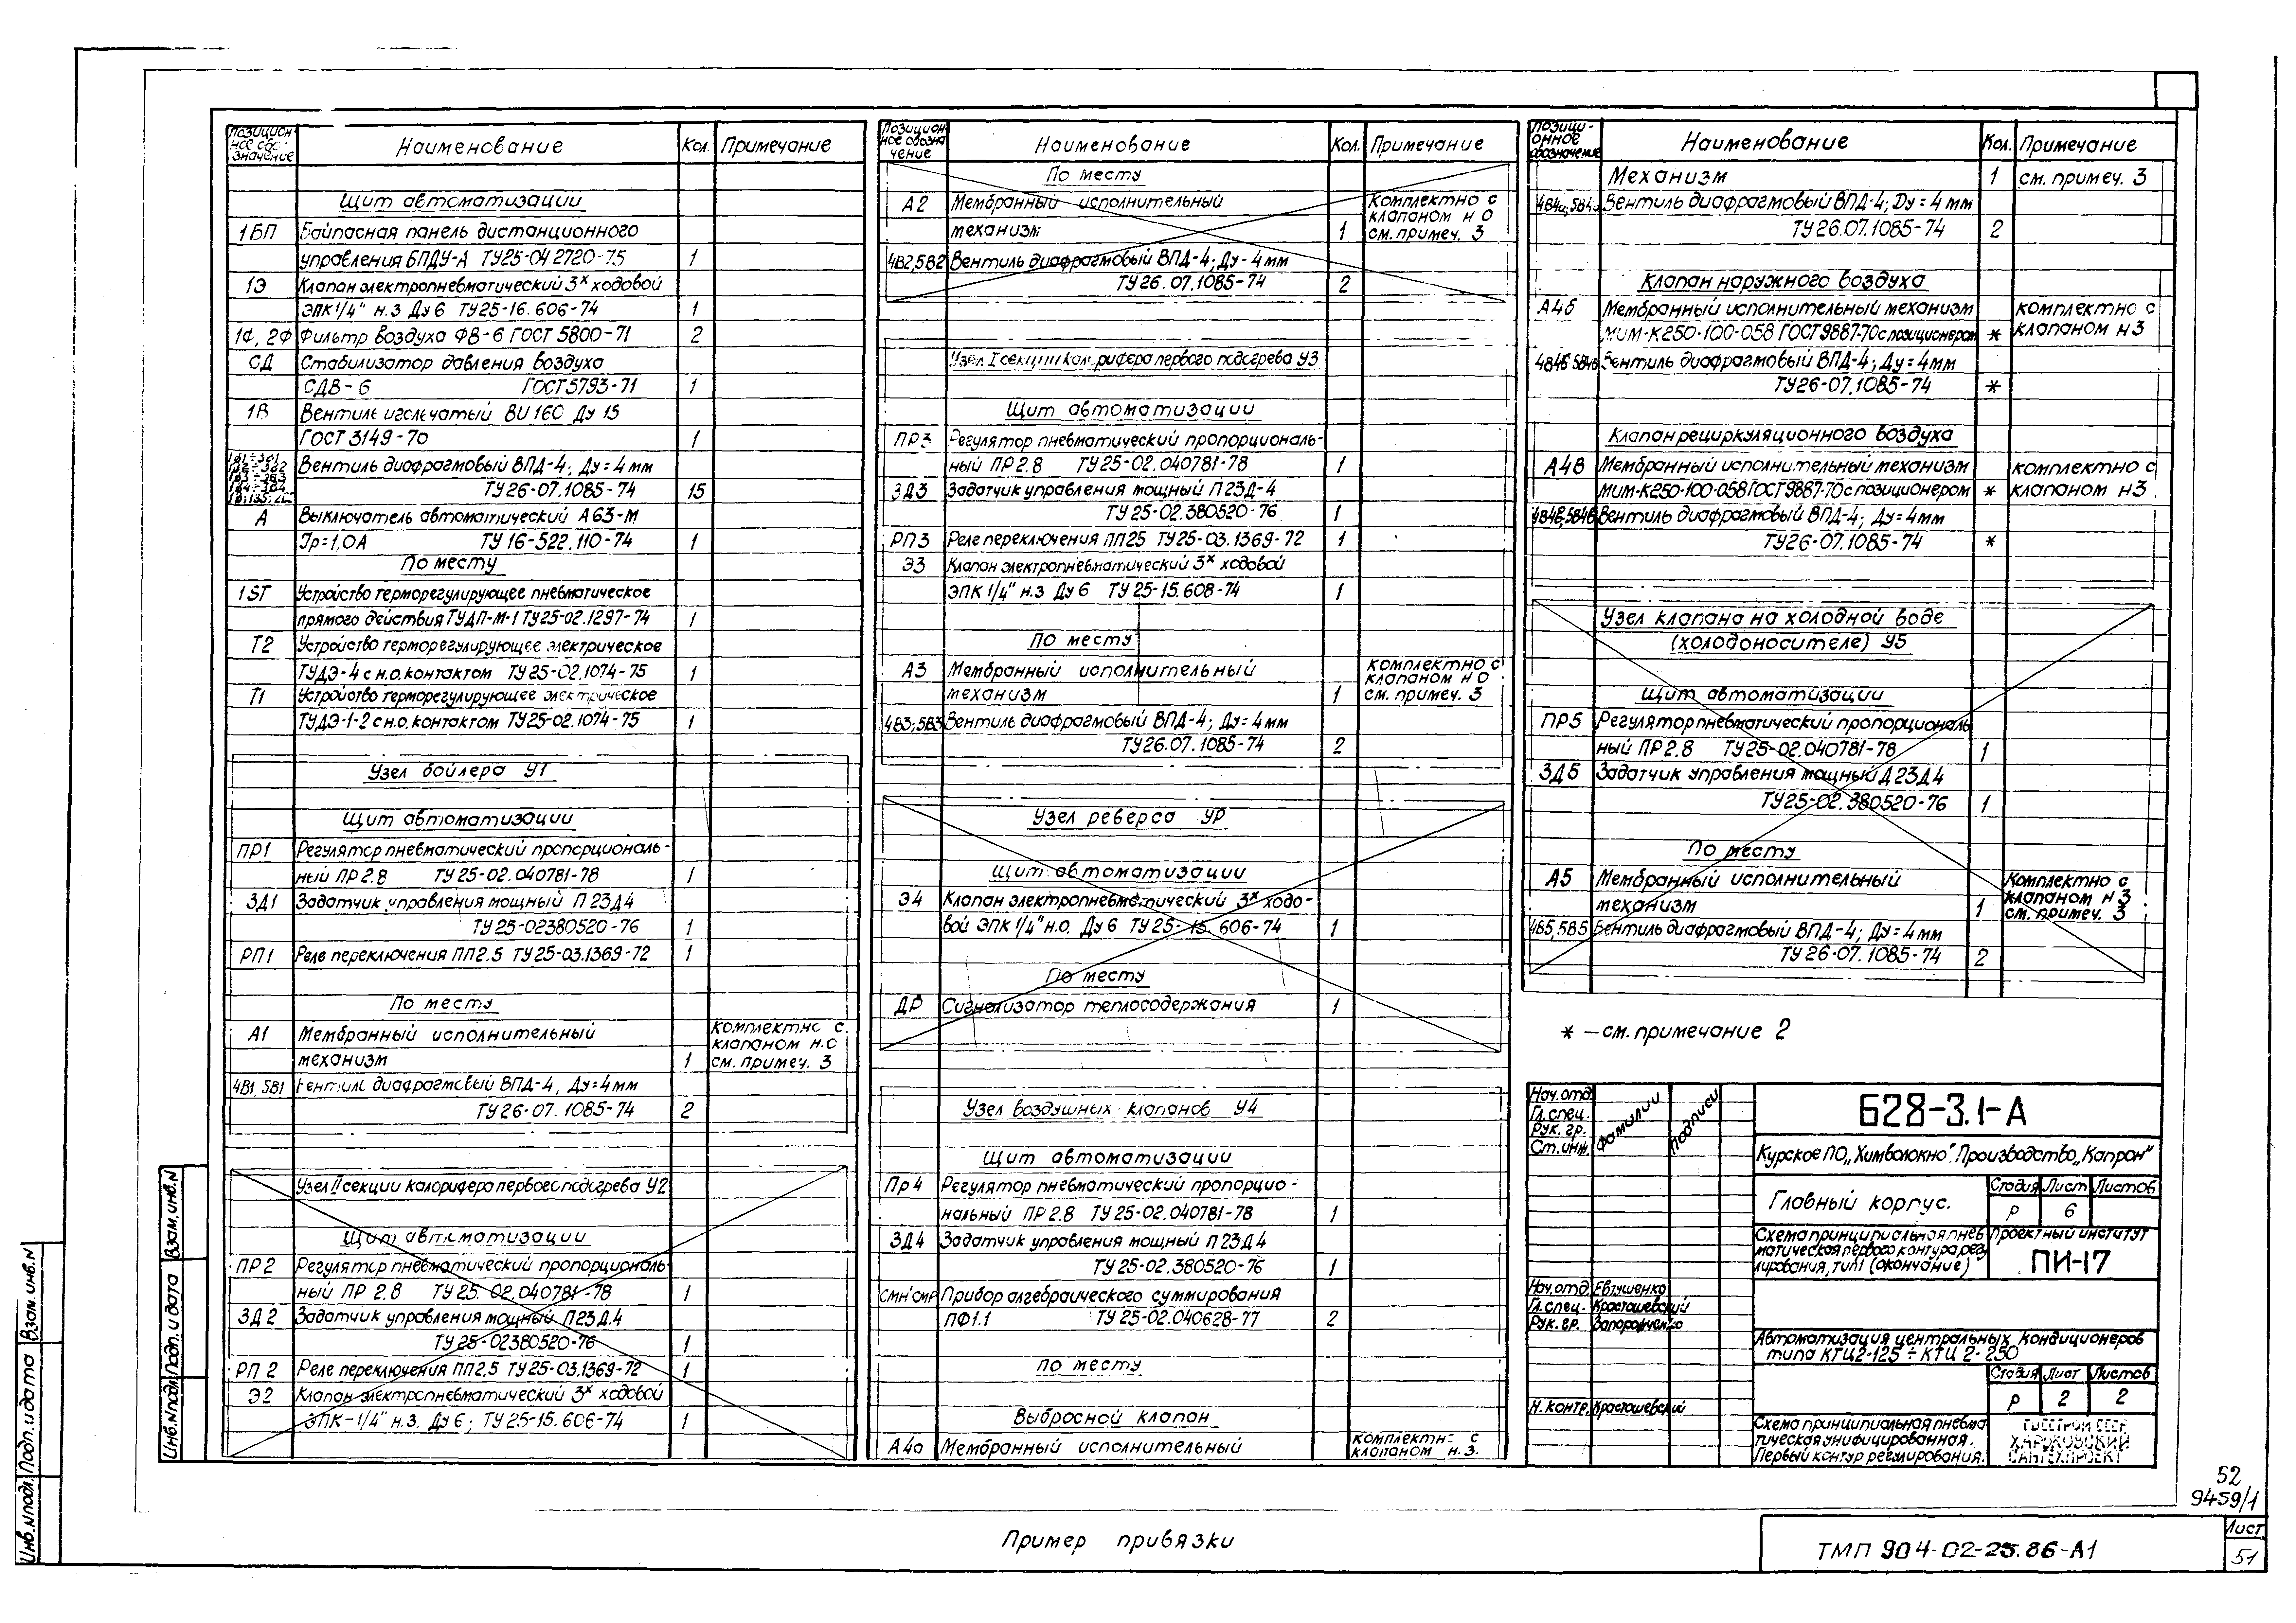 Позицион-
ное обо-
значение
Наименование
Кол.
Примечание
Щит автоматизации
1БП Байпасная панель дистанционного
управления БПДУ-А ТУ25-04 2720-75 1
1Э Клапан электропневматический 3х ходовой
ЭПК 1/4" н.з Ду 6 ТУ 25-16. 606-74 1
1Ф, 2Ф Фильтр воздуха ФВ-6 ГОСТ 5800-71 2
СД Стабилизатор давления воздуха
СДВ-6 ГОСТ 5793-71 1
1В Вентиль игольчатый ВИ 160 Ду 15
ГОСТ 3149-70 1
Вентиль диафрагмовый ВПД-4; Ду=4мм
ТУ26-07.1085-74 15
А Выключатель автоматический А63-М
Jр=1,0А ТУ 16-522.110-74 1
По месту
1SТ Устройство терморегулирующее пневматическое
прямого действия ТУДП-М-1 ТУ25-02.1297-74 1
Т2 Устройство терморегулирующее электрическое
ТУДЭ-4 с н.о. контактом ТУ 25-02.1074-75 1
Т1 Устройство терморегулирующее электрическое
ТУДЭ-1-2 с н.о. контактом ТУ25-02.1074-75 1
Узел бойлера У1
Щит автоматизации
ПР1 Регулятор пневматический пропорциональ-
ный ПР2.8 ТУ 25-02.040781-78 1
ЗД1 Задатчик управления мощный П 23Д4
ТУ 25-02380520-76 1
РП1 Реле переключения ПП2.5 ТУ 25-03.1369-72 1
По месту
А1 Мембранный исполнительный комплектно с
клапаном н.о
механизм 1 см. примеч. 3
4В1, 5В1 Вентиль диафрагмовый ВПД-4, Ду=4мм
ТУ26-07.1085-74 2
Узел II секции калорифера первого подогрева У2
Щит автоматизации
ПР2 Регулятор пневматический пропорциональ-
ный ПР 2.8 ТУ 25.02.040781-78 1
ЗД2 Задатчик управления мощный П23Д.4
ТУ 25-02380520-76 1
РП 2 Реле переключения ПП2,5 ТУ 25-03.1369-72 1
Э2 Клапан электропневматический 3х ходовой
ЭПК-1/4" н.з. Ду 6; ТУ25-15. 606-74 1
Позицион-
ное обозна
чение
Наименование
Кол.
Примечание
По месту
А2 Мембранный исполнительный Комплектно с
клапаном н о
механизм 1 см. примеч. 3
4В2,5В2 Вентиль диафрагмовый ВПД-4; Ду-4мм
ТУ26.07.1085-74 2
Узел I секции калорифера первого подогрева У3
Щит автоматизации
ПР3 Регулятор пневматический пропорциональ-
ный ПР 2.8 ТУ 25-02.040781-78 1
ЗД3 Задатчик управления мощный П 23Д-4
ТУ 25-02.380520-76 1
РП3 Реле переключения ПП25 ТУ 25-03.1369-72 1
Э3 Клапан электропневматический 3х ходовой
ЭПК 1/4" н.з Ду 6 ТУ 25-15.608-74 1
По месту
А3 Мембранный исполнительный комплектно с
клапаном н о
механизм 1 см. примеч. 3
4В3;5В3 Вентиль диафрагмовый ВПД-4; Ду=4мм
ТУ26.07.1085-74 2
Узел реверса УР
Щит автоматизации
Э4 Клапан электропневматический 3х ходо-
вой ЭПК 1/4" н.о. Ду 6 ТУ 25-15. 606-74 1
По месту
ДР Сигнализатор теплосодержания 1
Узел воздушных клапанов У4
Щит автоматизации
Пр4 Регулятор пневматический пропорцио-
нальный ПР2.8 ТУ 25-02.040781-78 1
ЗД4 Задатчик управления мощный П 23Д4
ТУ 25-02.380520-76 1
Прибор алгебраического суммирования
ПФ1.1 ТУ 25-02.040628-77 2
по месту
Выбросной клапан
А4а Мембранный исполнительный комплектно с
клапаном н.з.
Позици-
онное
обозначение
Наименование
Кол.
Примечание
Механизм 1 см. примеч. 3
4В4а,5В4а Вентиль диафрагмовый ВПД-4; Ду=4мм
ТУ26.07.1085-74 2
Клапан наружного воздуха
А4б Мембранный исполнительный механизм комплектно с
МИМ-К250-100-058 ГОСТ9887-70 с позиционером * клапаном н3
4В4б 5В4б Вентиль диафрагмовый ВПД-4; Ду=4мм
ТУ26-07.1085-74 *
Клапан рециркуляционного воздуха
А4в Мембранный исполнительный механизм комплектно с
МИМ-К250-100-058 ГОСТ9887-70 с позиционером * клапаном н3
4В4в,5В4в Вентиль диафрагмовый ВПД-4; Ду=4мм
ТУ26-07.1085-74 *
Узел клапана на холодной воде
(холодоносителе) У5
Щит автоматизации
ПР5 Регулятор пневматический пропорциональ
ный ПР2.8 ТУ 25-02.040781-78 1
ЗД5 Задатчик управления мощный П23Д4
ТУ25-02.380520-76 1
По месту
А5 Мембранный исполнительный Комплектно с
клапаном н 3
механизм 1 см. примеч. 3
4В5,5В5 Вентиль диафрагмовый ВПД-4; Ду=4мм
ТУ26-07.1085-74 2
* – см. примечание 2
Нач. отд
Гл. спец.
Рук. гр.
Ст. инж.
Фамилии
Подписи
Б28-3.1-А
Курское ПО „Химволокно". Производство „Капрон"
Главный корпус.
Стадия Лист Листов
Р 6
Схема принципиальная пнев
матическая первого контура регу
лирования, тип 1 (окончание)
Проектный институт
ПИ-17
Нач. отд. Евтушенко
Гл. спец. Красташевский
Рук. гр.
Н. контр. Красташевский
Автоматизация центральных кондиционеров
типа КТЦ2-125 ÷ КТЦ 2-250
Стадия Лист Листов
Р 2 2
Схема принципиальная пневма
тическая унифицированная.
Первый контур регулирования.
ГОССТРОЙ СССР
ХАРЬКОВСКИЙ
САНТЕХПРОЕКТ
Инв.N подл. Подп. и дата Взам. инв.N
Инв.N подл. Подп. и дата Взам. инв.N
52
9459/1
Пример привязки
ТМП 904-02-25.86-А1
Лист
51